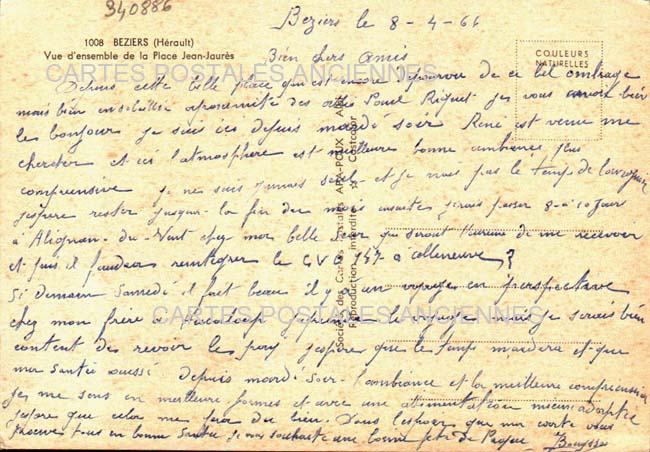 340886
Beziers le 8-4-66
1008 BEZIERS (Hérault)
Vue d'ensemble de la Place Jean-Jaurès
COULEURS
NATURELLES
Bien chers amis
CARTES POSTALES ANCIENNES
Depuis cette belle place qui est de ce bel ombrage
mais bien ensoleillée a proximité des allées Paul Riquet je vous envoie bien
le bonjour je suis ici depuis mardi soir René est venu me
chercher et ici l'atmosphère est meilleure bonne ambiance plus
comprensive je ne suis jamais seul et je n'ai pas le temps de
j'espère rester jusqu'a la fin du mois ensuite j'irais passer 8 a 10 jours
à Alignan-du-Vent chez ma belle Sœur qui serait heureuse de me recevoir
et puis il faudra réintégrer le
Si demain Samedi il fait beau il y a un voyage en perspective
chez mon frère le voyage mais je serais bien
CARTES POSTALES ANCIENNES
content de revoir le pays j'espère que le temps et que
ma santé aussi depuis mardi soir l'ambiance et la meilleure comprension
je me sens en meilleure formes et avec une alimentation mieux adaptée
j'espère que cela me fera du bien. Dans l'espoir que ma carte vous
trouve tous en bonne Santé je vous souhaite une bonne fête de Paques
Société des Cartes Postales APA-POUX
Reproduction interdite Costcolor